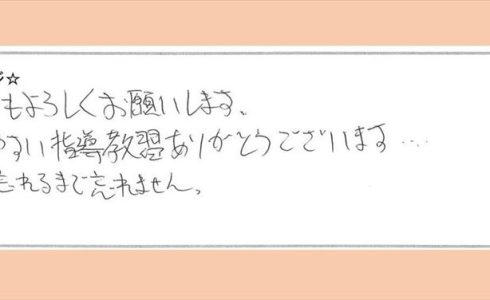 ☆
もよろしくお願いします、
すい指導教習ありがとうございます…
忘れるまで忘れません。